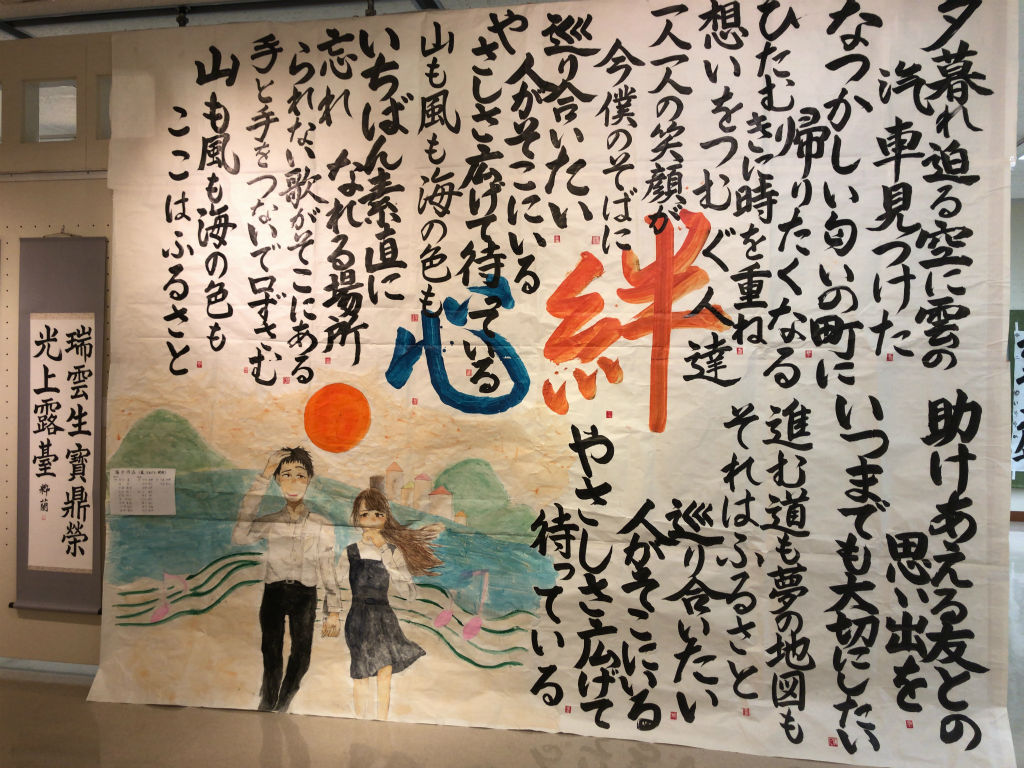 夕暮れ迫る空に雲の
汽車見つけた
なつかしい匂いの町に
帰りたくなる
ひたむきに時を重ね
想いをつむぐ人達
一人一人の笑顔が
今僕のそばに
巡り合いたい
人がそこにいる
やさしさ広げて待っている
山も風も海の色も
いちばん素直に
なれる場所
忘れ
られない歌がそこにある
手と手をつないで口ずさむ
山も風も海の色も
ここはふるさと
助けあえる友との
思い出を
いつまでも大切にしたい
進む道も夢の地図も
それはふるさと
巡り合いたい
人がそこにいる
やさしさ広げて
待っている
絆
心
瑞雲生寶鼎榮
光上露臺